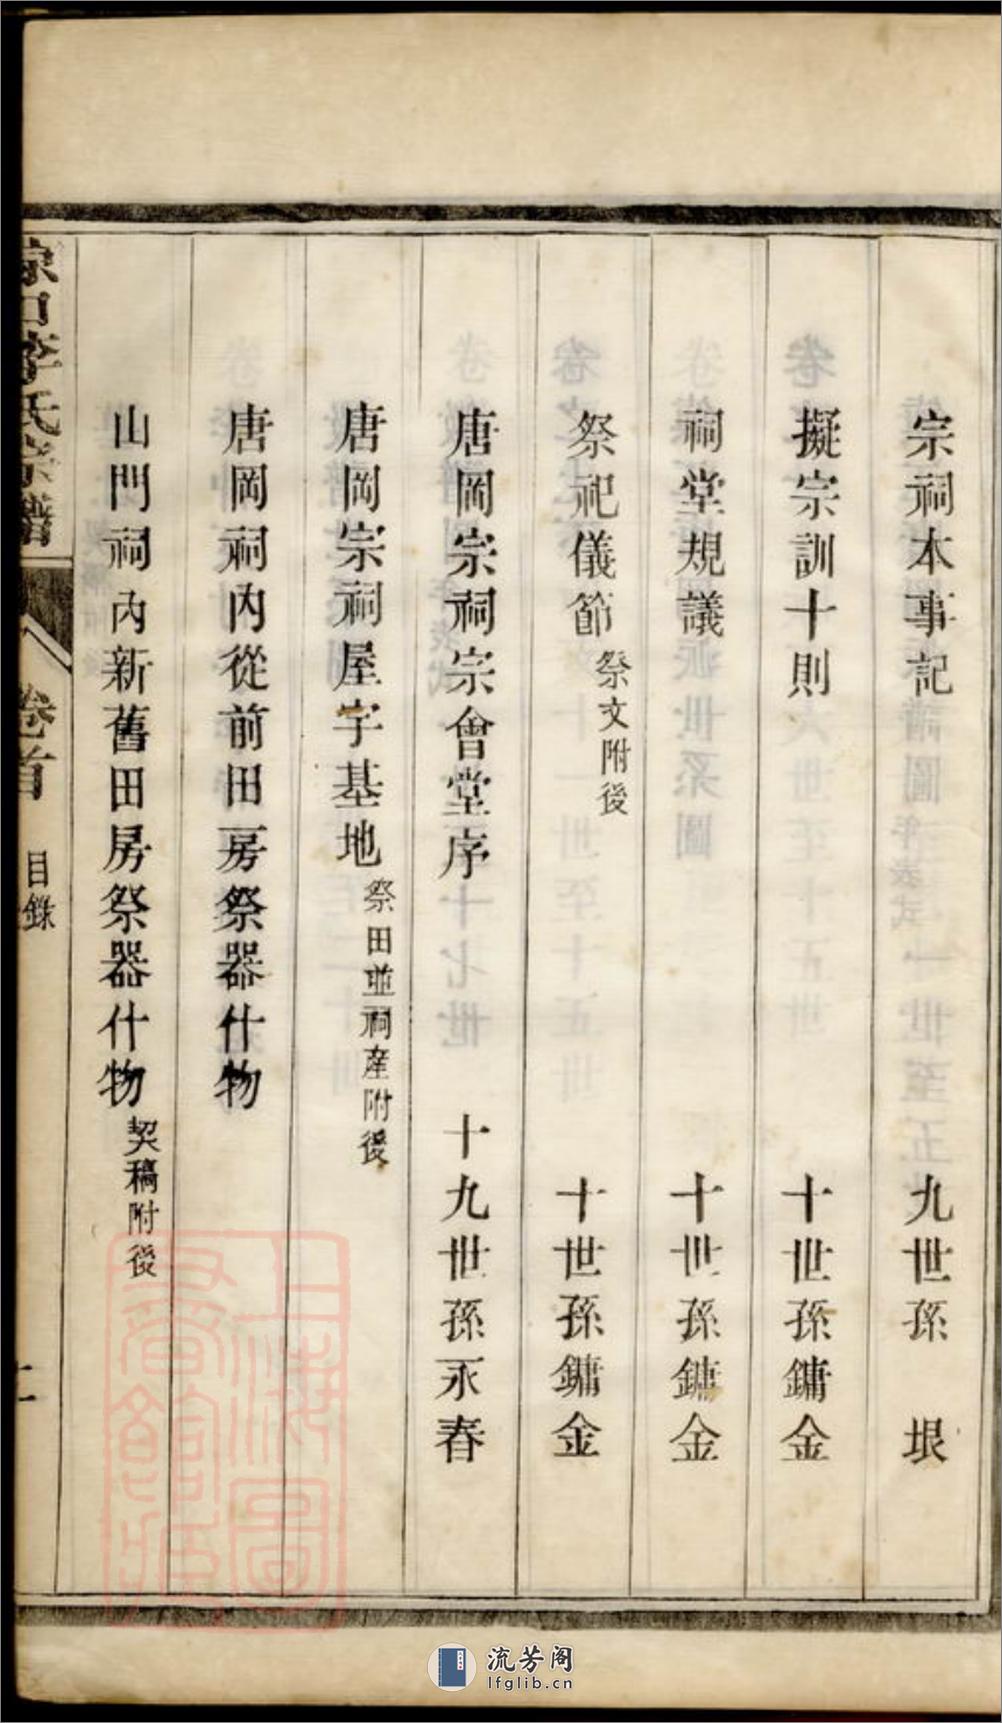 宗祠本事記 九世孫 垠
擬宗訓十則 十世孫鏞金
祠堂規議 十世孫鏞金
祭祀儀節 祭文附後 十世孫鏞金
唐岡宗祠宗會堂序 十九世孫永春
唐岡宗祠屋宇基地 祭田並祠產附後
唐岡祠內從前田房祭器什物
山門祠內新舊田房祭器什物 契稿附後
口李氏宗譜 卷首 目錄
上海圖書館藏
流芳阁
lfglib.cn